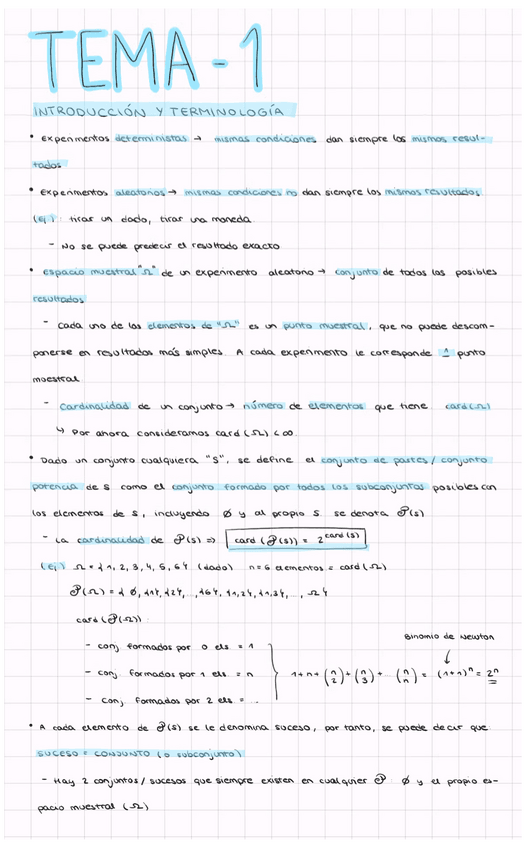 TEMA - 1
INTRODUCCIÓN Y TERMINOLOGÍA
• Experimentos deterministas → mismas condiciones dan siempre los mismos resul-
tados
• Experimentos aleatorios → mismas condiciones no dan siempre los mismos resultados
(Ej): tirar un dado, tirar una moneda.
- No se puede predecir el resultado exacto
• espacio muestral "Ω" de un experimento aleatorio → conjunto de todos los posibles
resultados
- Cada uno de los elementos de "Ω" es un punto muestral, que no puede descom-
ponerse en resultados más simples. A cada experimento le corresponde 1 punto
muestral
- Cardinalidad de un conjunto → número de elementos que tiene. card(Ω)
↳ Por ahora consideramos card(Ω) < ∞.
• Dado un conjunto cualquiera "S", se define el conjunto de partes / conjunto
potencia de S como el conjunto formado por todos los subconjuntos posibles con
los elementos de S, incluyendo ∅ y al propio S. se denota 𝒫(S)
- La cardinalidad de 𝒫(S) => card(𝒫(S)) = 2^card(S)
(Ej) Ω = {1, 2, 3, 4, 5, 6} (dado) n=6 elementos = card(Ω)
𝒫(Ω) = { ∅, {1}, {2}, ..., {6}, {1,2}, {1,3}, ..., Ω }
card(𝒫(Ω)):
Binomio de Newton
- conj. formados por 0 els. = 1
- conj. formados por 1 els. = n
1+n+(n 2)+(n 3)+...(n n) = (1+1)^n = 2^n
- conj. formados por 2 els = ...
• A cada elemento de 𝒫(S) se le denomina suceso, por tanto, se puede decir que
SUCESO = CONJUNTO (o subconjunto)
- Hay 2 conjuntos / sucesos que siempre existen en cualquier 𝒫: ∅ y el propio es-
pacio muestral (Ω)